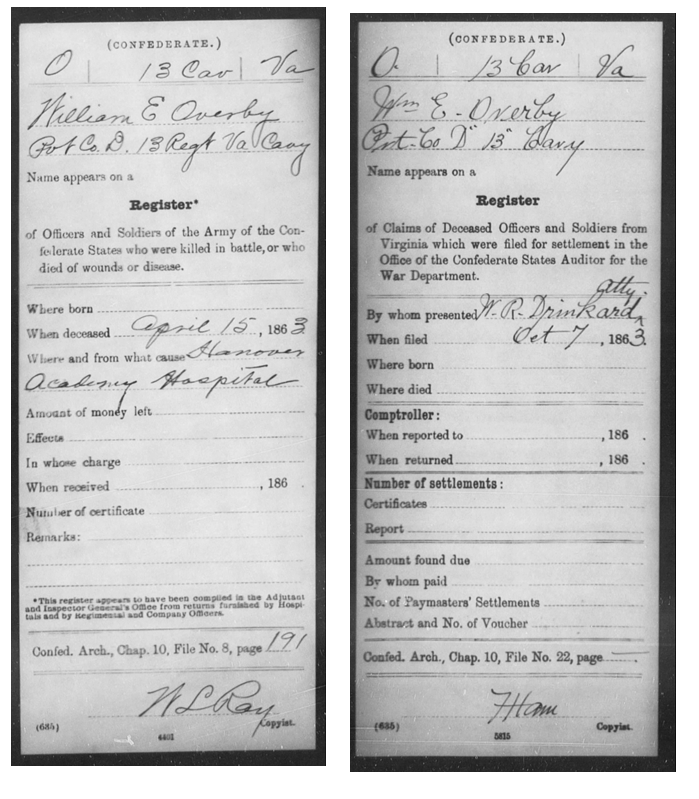 (CONFEDERATE.)
O | 13 Cav | Va
William E Overby
Pvt Co. D. 13 Regt Va Cavy
Name appears on a
Register*
of Officers and Soldiers of the Army of the Con-
federate States who were killed in battle, or who
died of wounds or disease.
Where born
When deceased April 15, 1863
Where and from what cause Hanover
Academy Hospital
Amount of money left
Effects
In whose charge
When received , 186
Number of certificate
Remarks:
*This register appears to have been compiled in the Adjutant
and Inspector General's Office from returns furnished by Hospi-
tals and by Regimental and Company Officers.
Confed. Arch., Chap. 10, File No. 8, page 191
W L Ray
(635) Copyist.
4401
(CONFEDERATE.)
O. | 13 Cav | Va
Wm E - Overby
Pvt - Co "D" 13" Cavy
Name appears on a
Register
of Claims of Deceased Officers and Soldiers from
Virginia which were filed for settlement in the
Office of the Confederate States Auditor for the
War Department.
atty.
By whom presented W. R. Drinkard
When filed Oct 7, 1863.
Where born
Where died
Comptroller:
When reported to , 186 .
When returned , 186 .
Number of settlements:
Certificates
Report
Amount found due
By whom paid
No. of Paymasters' Settlements
Abstract and No. of Voucher
Confed. Arch., Chap. 10, File No. 22, page —.
(635) Copyist.
5815